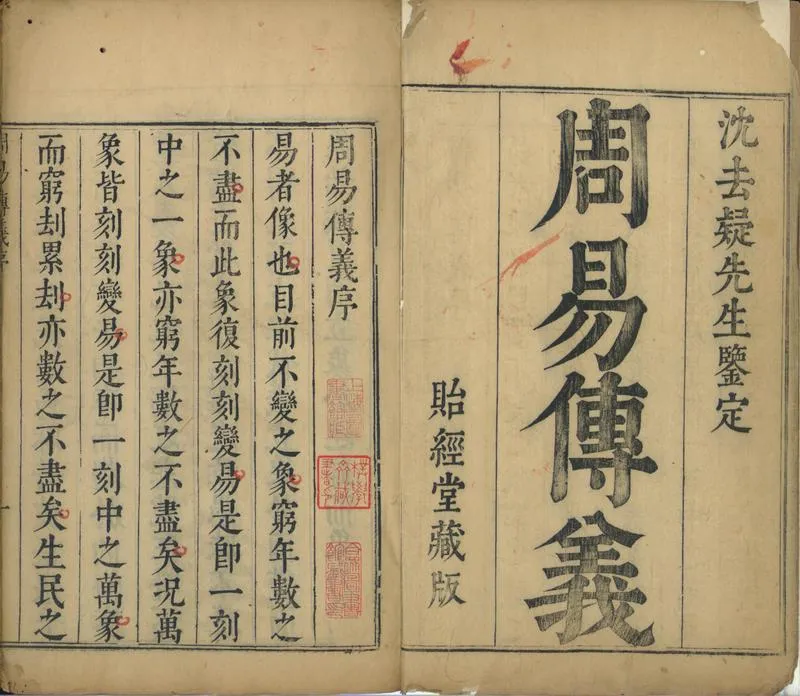 沈去疑先生鑒定
周易傳義
貽經堂藏版
周易傳義序
易者像也目前不變之象窮年數之
不盡而此象復刻刻變易是卽一刻
中之一象亦窮年數之不盡矣况萬
象皆刻刻變易是卽一刻中之萬象
而窮刦累刦亦數之不盡矣生民之
周易傳義序
一